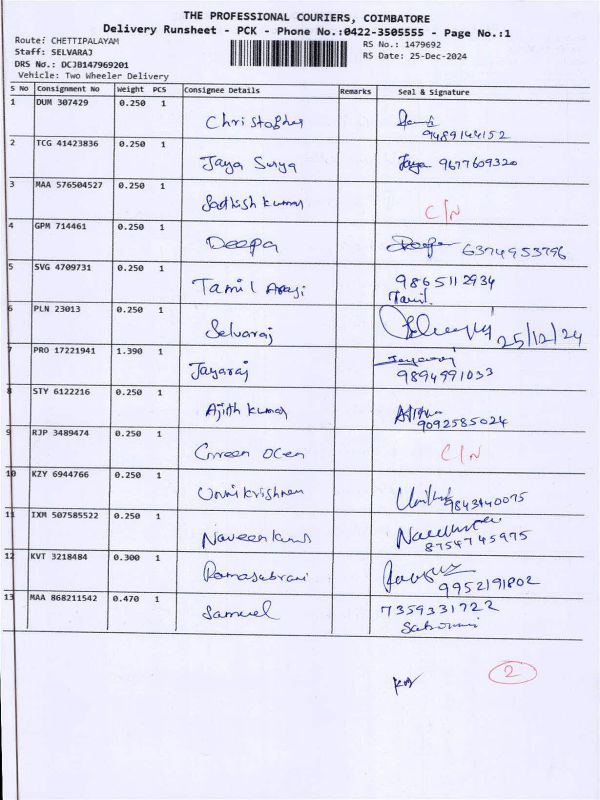 THE PROFESSIONAL COURIERS, COIMBATORE
Delivery Runsheet - PCK - Phone No.:0422-3505555 - Page No.:1
Route: CHETTIPALAYAM RS No.: 1479692
Staff: SELVARAJ RS Date: 25-Dec-2024
DRS No.: DCJB147969201
Vehicle: Two Wheeler Delivery
S No Consignment No Weight PCS Consignee Details Remarks Seal & Signature
1 DUM 307429 0.250 1 Christopher
9489144152
2 TCG 41423836 0.250 1 Jaya Surya Jaya 9677609320
3 MAA 576504527 0.250 1 Sadhish kumar C/N
4 GPM 714461 0.250 1 Deepa Deepa 6374953796
5 SVG 4709731 0.250 1 Tamil Arasi 9865112934
Tamil
6 PLN 23013 0.250 1 Selvaraj 25/12/24
7 PRO 17221941 1.390 1 Jayaraj Jayaraj
9894991033
8 STY 6122216 0.250 1 Ajith kumar
9092585024
9 RJP 3489474 0.250 1 Green Ocen C/N
10 KZY 6944766 0.250 1 Unnikrishnan 9843140075
11 IXM 507585522 0.250 1 Naveen kumar
8754745975
12 KVT 3218484 0.300 1 Ramasubrani
9952191802
13 MAA 868211542 0.470 1 Samuel 7359331722
2